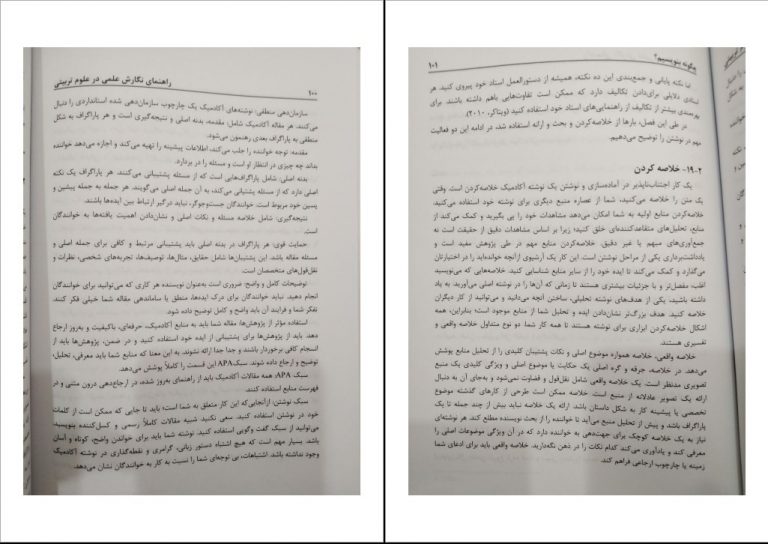 ۱۰۰
راهنمای نگارش علمی در علوم تربیتی
سازمان‌دهی منطقی: نوشته‌های آکادمیک یک چارچوب سازمان‌دهی شده استانداردی را دنبال
می‌کنند. هر مقاله آکادمیک شامل: مقدمه، بدنه اصلی و نتیجه‌گیری است و هر پاراگراف به شکل
منطقی به پاراگراف بعدی رهنمون می‌شود.
مقدمه: توجه خواننده را جلب می‌کند، اطلاعات پیشینه را تهیه می‌کند و اجازه می‌دهد خواننده
بداند چه چیزی در انتظار او است و مسئله را در بردارد.
بدنه اصلی: شامل پاراگراف‌هایی است که از مسئله پشتیبانی می‌کنند. هر پاراگراف یک نکته
اصلی دارد که از مسئله پشتیانی می‌کند، به آن جمله اصلی می‌گویند. هر جمله به جمله پیشین و
پسین خود مربوط است. خوانندگان جست‌وجوگر، نباید درگیر ارتباط بین ایده‌ها باشند.
نتیجه‌گیری: شامل خلاصه مسئله و نکات اصلی و نشان‌دادن اهمیت یافته‌ها به خوانندگان
است.
حمایت قوی: هر پاراگراف در بدنه اصلی باید پشتیبانی مرتبط و کافی برای جمله اصلی و
مسئله مقاله باشد. این پشتیبان‌ها شامل حقایق، مثال‌ها، توصیف‌ها، تجربه‌های شخصی، نظرات و
نقل‌قول‌های متخصصان است.
توضیحات کامل و واضح: ضروری است به‌عنوان نویسنده هر کاری که می‌توانید برای خوانندگان
انجام دهید. نباید خوانندگان برای درک ایده‌ها، منطق یا ساماندهی مقاله شما خیلی فکر کنند.
تفکر شما و فرایند آن باید واضح و کامل توضیح داده شود.
استفاده مؤثر از پژوهش‌ها: مقاله شما باید به منابع آکادمیک، حرفه‌ای، باکیفیت و به‌روز ارجاع
دهد. باید از پژوهش‌ها برای پشتیبانی از ایده خود استفاده کنید و در ضمن، پژوهش‌ها باید از
انسجام کافی برخوردار باشند و جدا جدا ارائه نشوند. به این معنا که منابع شما باید معرفی، تحلیل؛
توضیح و ارجاع داده شوند. سبک APA این قسمت را کاملاً پوشش می‌دهد.
سبک APA: همه مقالات آکادمیک باید از راهنمای به‌روز شده، در ارجاع‌دهی درون متنی و در
فهرست منابع استفاده کنند.
سبک نوشتن: ازآنجایی‌که این کار متعلق به شما است؛ باید تا جایی که ممکن است از کلمات
خود در نوشتن استفاده کنید. سعی نکنید شبیه مقالات کاملاً رسمی و کسل‌کننده بنویسید،
می‌توانید از سبک گفت وگویی استفاده کنید. نوشته شما باید برای خواندن واضح، کوتاه و آسان
باشد. بسیار مهم است که هیچ اشتباه دستور زبانی، گرامری و نقطه‌گذاری در نوشته آکادمیک
وجود نداشته باشد. اشتباهات، بی توجه‌ای شما را نسبت به کار به خوانندگان نشان می‌دهد.
چگونه بنویسیم؟
۱۰۱
اما نکته پایانی و جمع‌بندی این ده نکته، همیشه از دستورالعمل استاد خود پیروی کنید. هر
استادی دلایلی برای‌دادن تکالیف دارد که ممکن است تفاوت‌هایی باهم داشته باشند. برای
بهره‌مندی بیشتر از تکالیف از راهنمایی‌های استاد خود استفاده کنید (ویتاکر، ۲۰۱۰).
در طی این فصل، بارها از خلاصه‌کردن و بحث و ارائه استفاده شد، در ادامه این دو فعالیت
مهم در نوشتن را توضیح می‌دهیم.
۲-۱۹- خلاصه کردن
یک کار اجتناب‌ناپذیر در آماده‌سازی و نوشتن یک نوشته آکادمیک خلاصه‌کردن است. وقتی
یک متن را خلاصه می‌کنید، شما از عصاره منبع دیگری برای نوشته خود استفاده می‌کنید.
خلاصه‌کردن منابع اولیه به شما امکان می‌دهد مشاهدات خود را پی بگیرید و کمک می‌کند از
منابع، تحلیل‌های متقاعدکننده‌ای خلق کنید؛ زیرا بر اساس مشاهدات دقیق از حقیقت است نه
جمع‌آوری‌های مبهم یا غیر دقیق. خلاصه‌کردن منابع مهم در طی پژوهش مفید است و
یادداشت‌برداری یکی از مراحل نوشتن است. این کار یک آرشیوی از آنچه خوانده‌اید را در اختیارتان
می‌گذارد و کمک می‌کند تا ایده خود را از سایر منابع شناسایی کنید. خلاصه‌هایی که می‌نویسید
اغلب، مفصل‌تر و با جزئیات بیشتری هستند تا زمانی که آن‌ها را در نوشته اصلی می‌آورید. به یاد
داشته باشید، یکی از هدف‌های نوشته تحلیلی، ساختن آنچه می‌دانید و می‌توانید از کار دیگران
خلاصه کنید. هدف بزرگ‌تر نشان‌دادن ایده و تحلیل شما از منابع موجود است؛ بنابراین، همه
اشکال خلاصه‌کردن ابزاری برای نوشته هستند تا همه کار شما. دو نوع متداول خلاصه واقعی و
تفسیری هستند.
خلاصه واقعی، خلاصه همواره موضوع اصلی و نکات پشتیبان کلیدی را از تحلیل منابع پوشش
می‌دهد. در خلاصه، جرقه و گره اصلی یک حکایت یا موضوع اصلی و ویژگی کلیدی یک منبع
تصویری مدنظر است. یک خلاصه واقعی شامل نقل‌قول و قضاوت نمی‌شود و به‌جای آن به دنبال
ارائه یک تصویر عادلانه از منبع است. خلاصه ممکن است طرحی از کارهای گذشته موضوع
تخصصی یا پیشینه کار به شکل داستان باشد. ارائه یک خلاصه نباید بیش از چند جمله تا یک
پاراگراف باشد و پیش از تحلیل منبع می‌آید تا خواننده را از بحث نویسنده مطلع کند. هر نوشته‌ای
نیاز به یک خلاصه کوچک برای جهت‌دهی به خواننده دارد که در آن ویژگی موضوعات اصلی را
معرفی کند و یادآوری می‌کند کدام نکات را در ذهن نگه‌دارید. خلاصه واقعی باید برای ادعای شما
زمینه یا چارچوب ارجاعی فراهم کند.